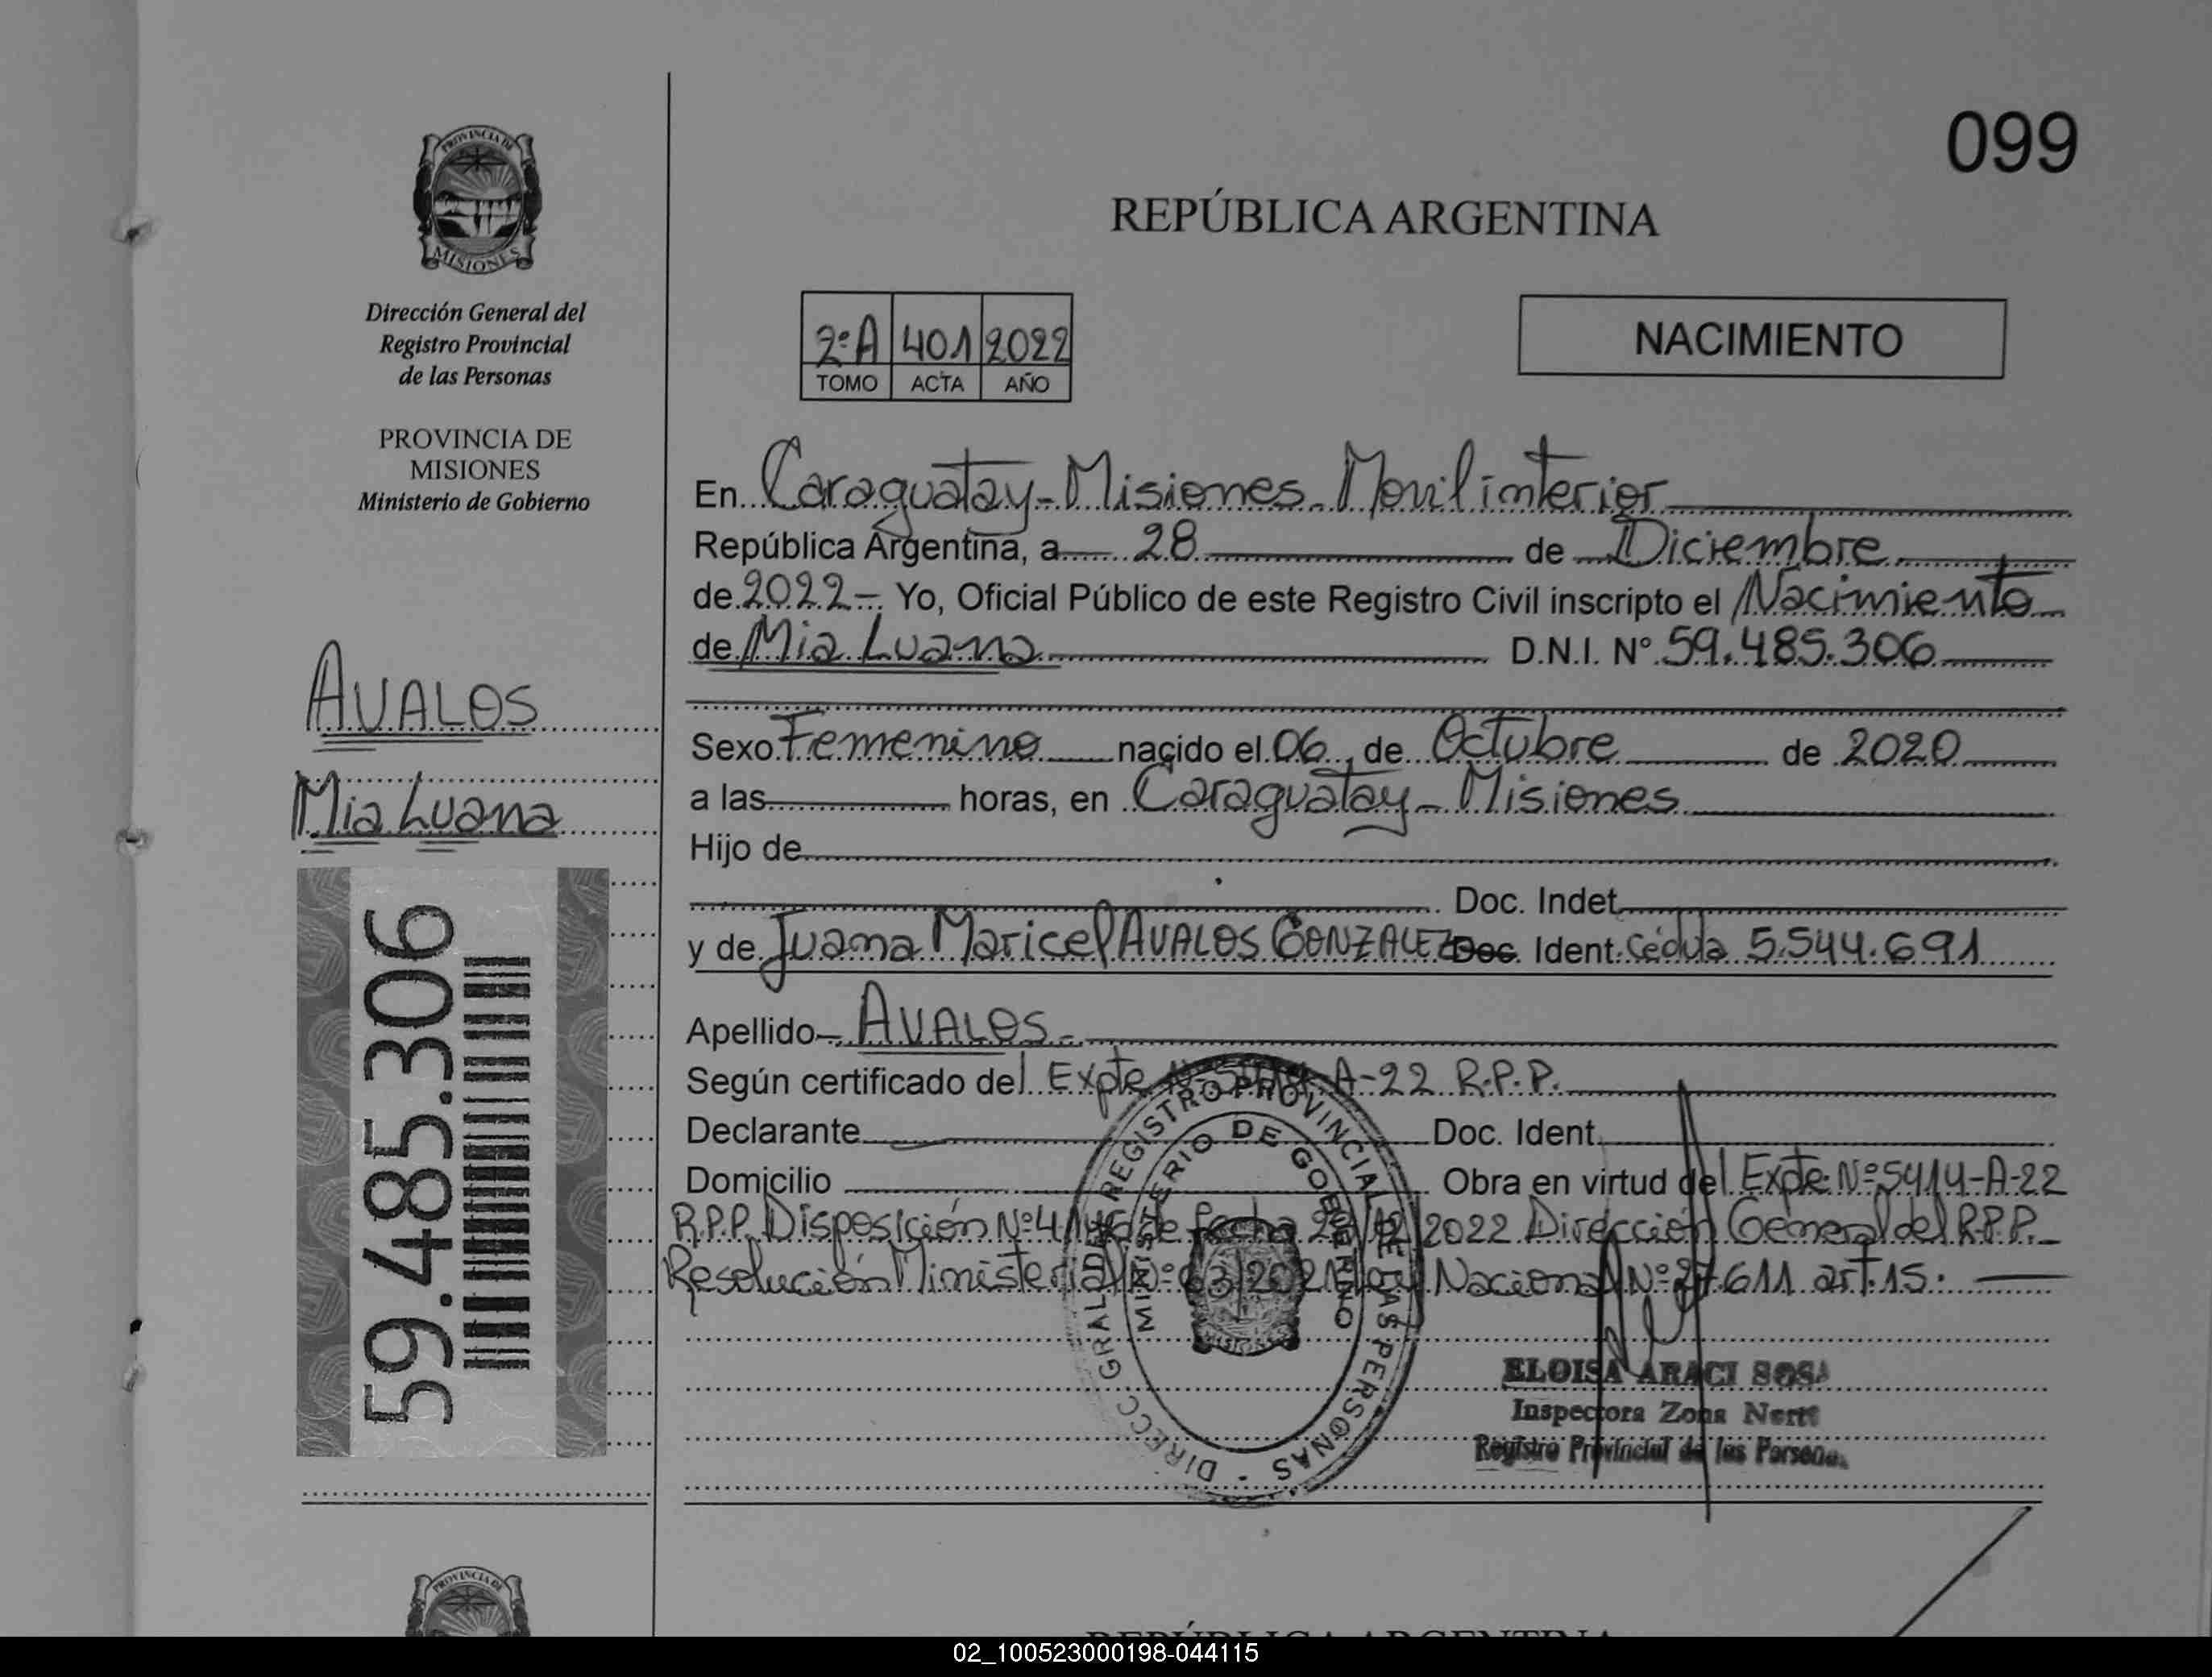 099
PROVINCIA DE
MISIONES
Dirección General del
Registro Provincial
de las Personas
PROVINCIA DE
MISIONES
Ministerio de Gobierno
REPÚBLICA ARGENTINA
2ºA 401 2022
TOMO ACTA AÑO
NACIMIENTO
En Caraguatay-Misiones. Movil interior
República Argentina, a 28 de Diciembre
de 2022- Yo, Oficial Público de este Registro Civil inscripto el Nacimiento
de Mia Luana D.N.I. Nº 59.485.306
Sexo Femenino nacido el 06 de Octubre de 2020
a las horas, en Caraguatay-Misiones
Hijo de
Doc. Indet
y de Juana Maricel AVALOS GONZALEZ Doc. Ident. Cédula 5.544.691
Apellido- AVALOS.-
Según certificado del Expte A-22 R.P.P.
Declarante Doc. Ident.
Domicilio Obra en virtud del Expte. Nº5414-A-22
R.P.P. Disposición Nº de fecha 2022 Dirección General del R.P.P.
Resolución Ministerial Nº 63/2021 Nacional Nº27.611 art.15.
AVALOS
Mia Luana
59.485.306
DIRECC GRAL DEL REGISTRO PROVINCIAL DE LAS PERSONAS
MINISTERIO DE GOBIERNO
MISIONES
ELOISA ARACI SOSA
Inspectora Zona Norte
Registro Provincial de las Personas
PROVINCIA DE
REPÚBLICA ARGENTINA
02_100523000198-044115